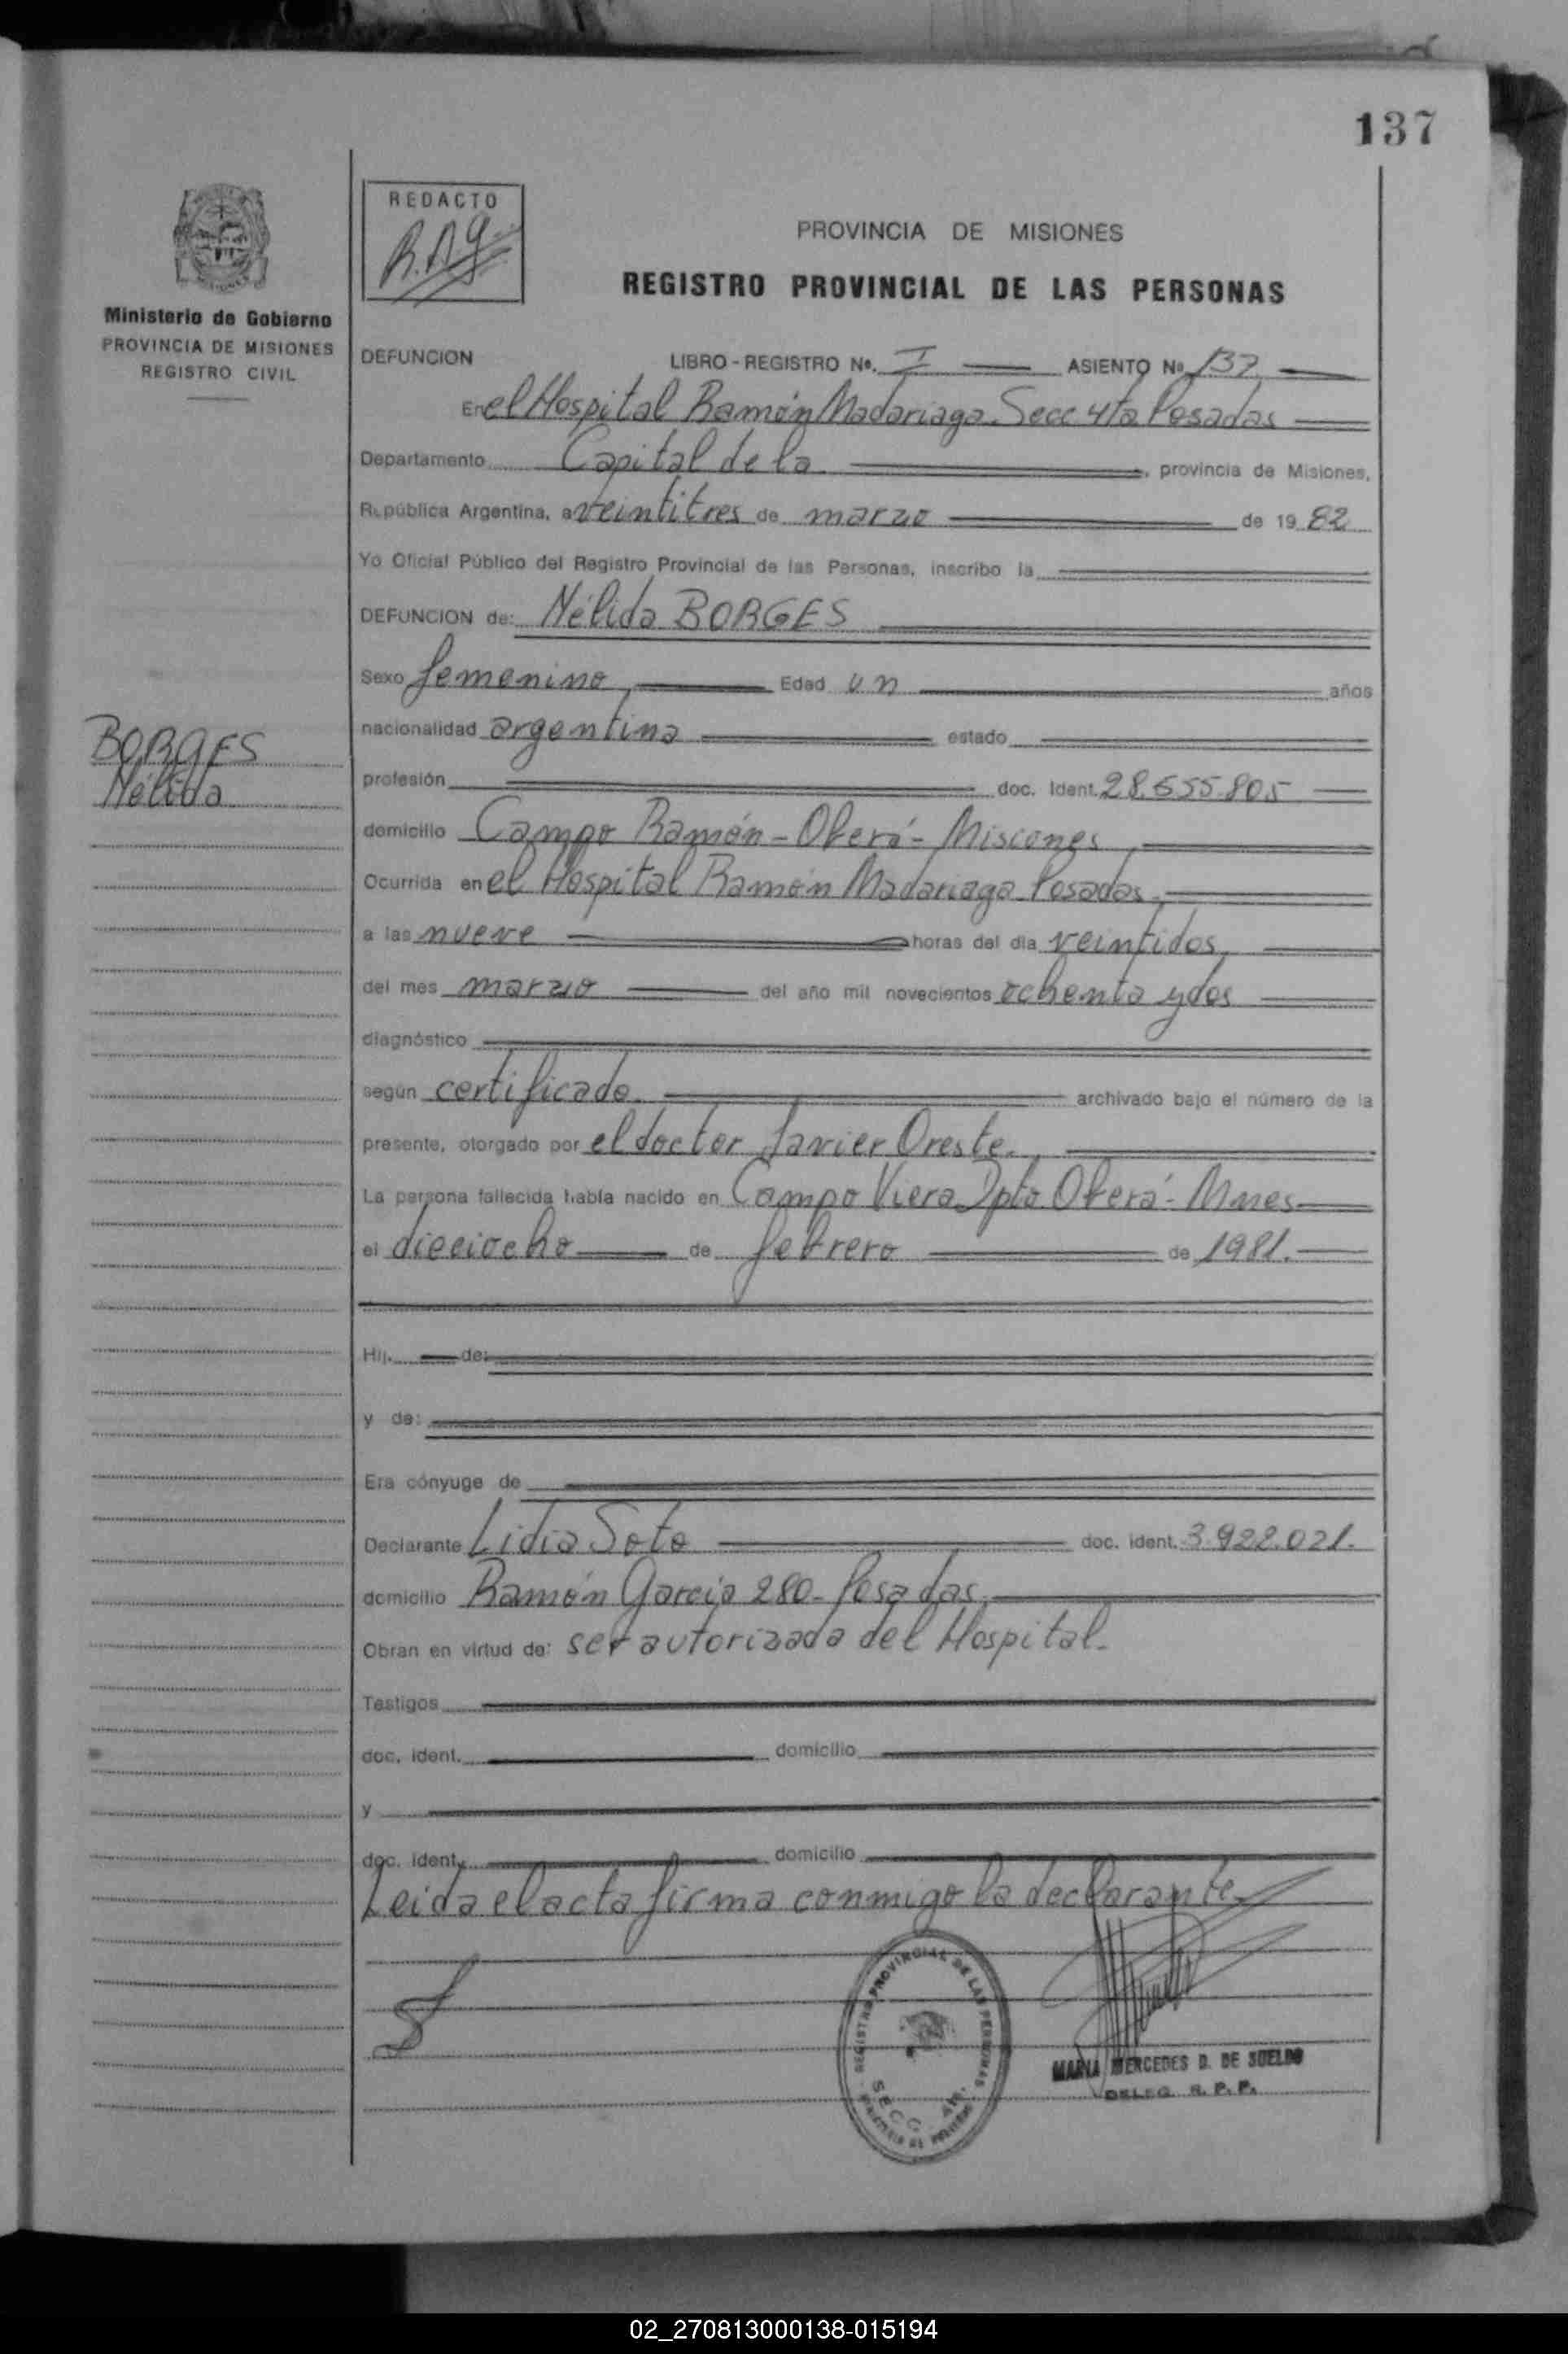 137
REDACTO
PROVINCIA DE MISIONES
REGISTRO PROVINCIAL DE LAS PERSONAS
Ministerio de Gobierno
PROVINCIA DE MISIONES
REGISTRO CIVIL
DEFUNCION LIBRO - REGISTRO Nº. I ASIENTO Nº 137
En el Hospital Ramón Madariaga. Secc 4ta Posadas
Departamento Capital de la , provincia de Misiones,
República Argentina, a veintitres de marzo de 19 82
Yo Oficial Público del Registro Provincial de las Personas, inscribo la
DEFUNCION de: Nélida BORGES
Sexo femenino, Edad un años
nacionalidad argentina estado
BORGES
Nélida
profesión doc. Ident. 28.655.805
domicilio Campo Ramón - Oberá - Misiones,
Ocurrida en el Hospital Ramón Madariaga Posadas,
a las nueve horas del día veintidos,
del mes marzo del año mil novecientos ochenta y dos
diagnóstico
según certificado archivado bajo el número de la
presente, otorgado por el doctor Javier Oreste.,
La persona fallecida había nacido en Campo Viera Dpto Oberá - Mnes
el dieciocho de febrero de 1981.
Hij. de:
y de:
Era cónyuge de
Declarante Lidia Soto doc. ident. 3.922.021.
domicilio Ramón García 280 - Posadas,
Obran en virtud de: ser autorizada del Hospital.
Testigos
doc. ident. domicilio
y
doc. ident. domicilio
Leida el acta firma conmigo la declarante.
REGISTRO PROVINCIAL DE LAS PERSONAS
SECC. 4ta.
MARIA MERCEDES D. DE SUELDO
DELEG. R. P. P.
02_270813000138-015194